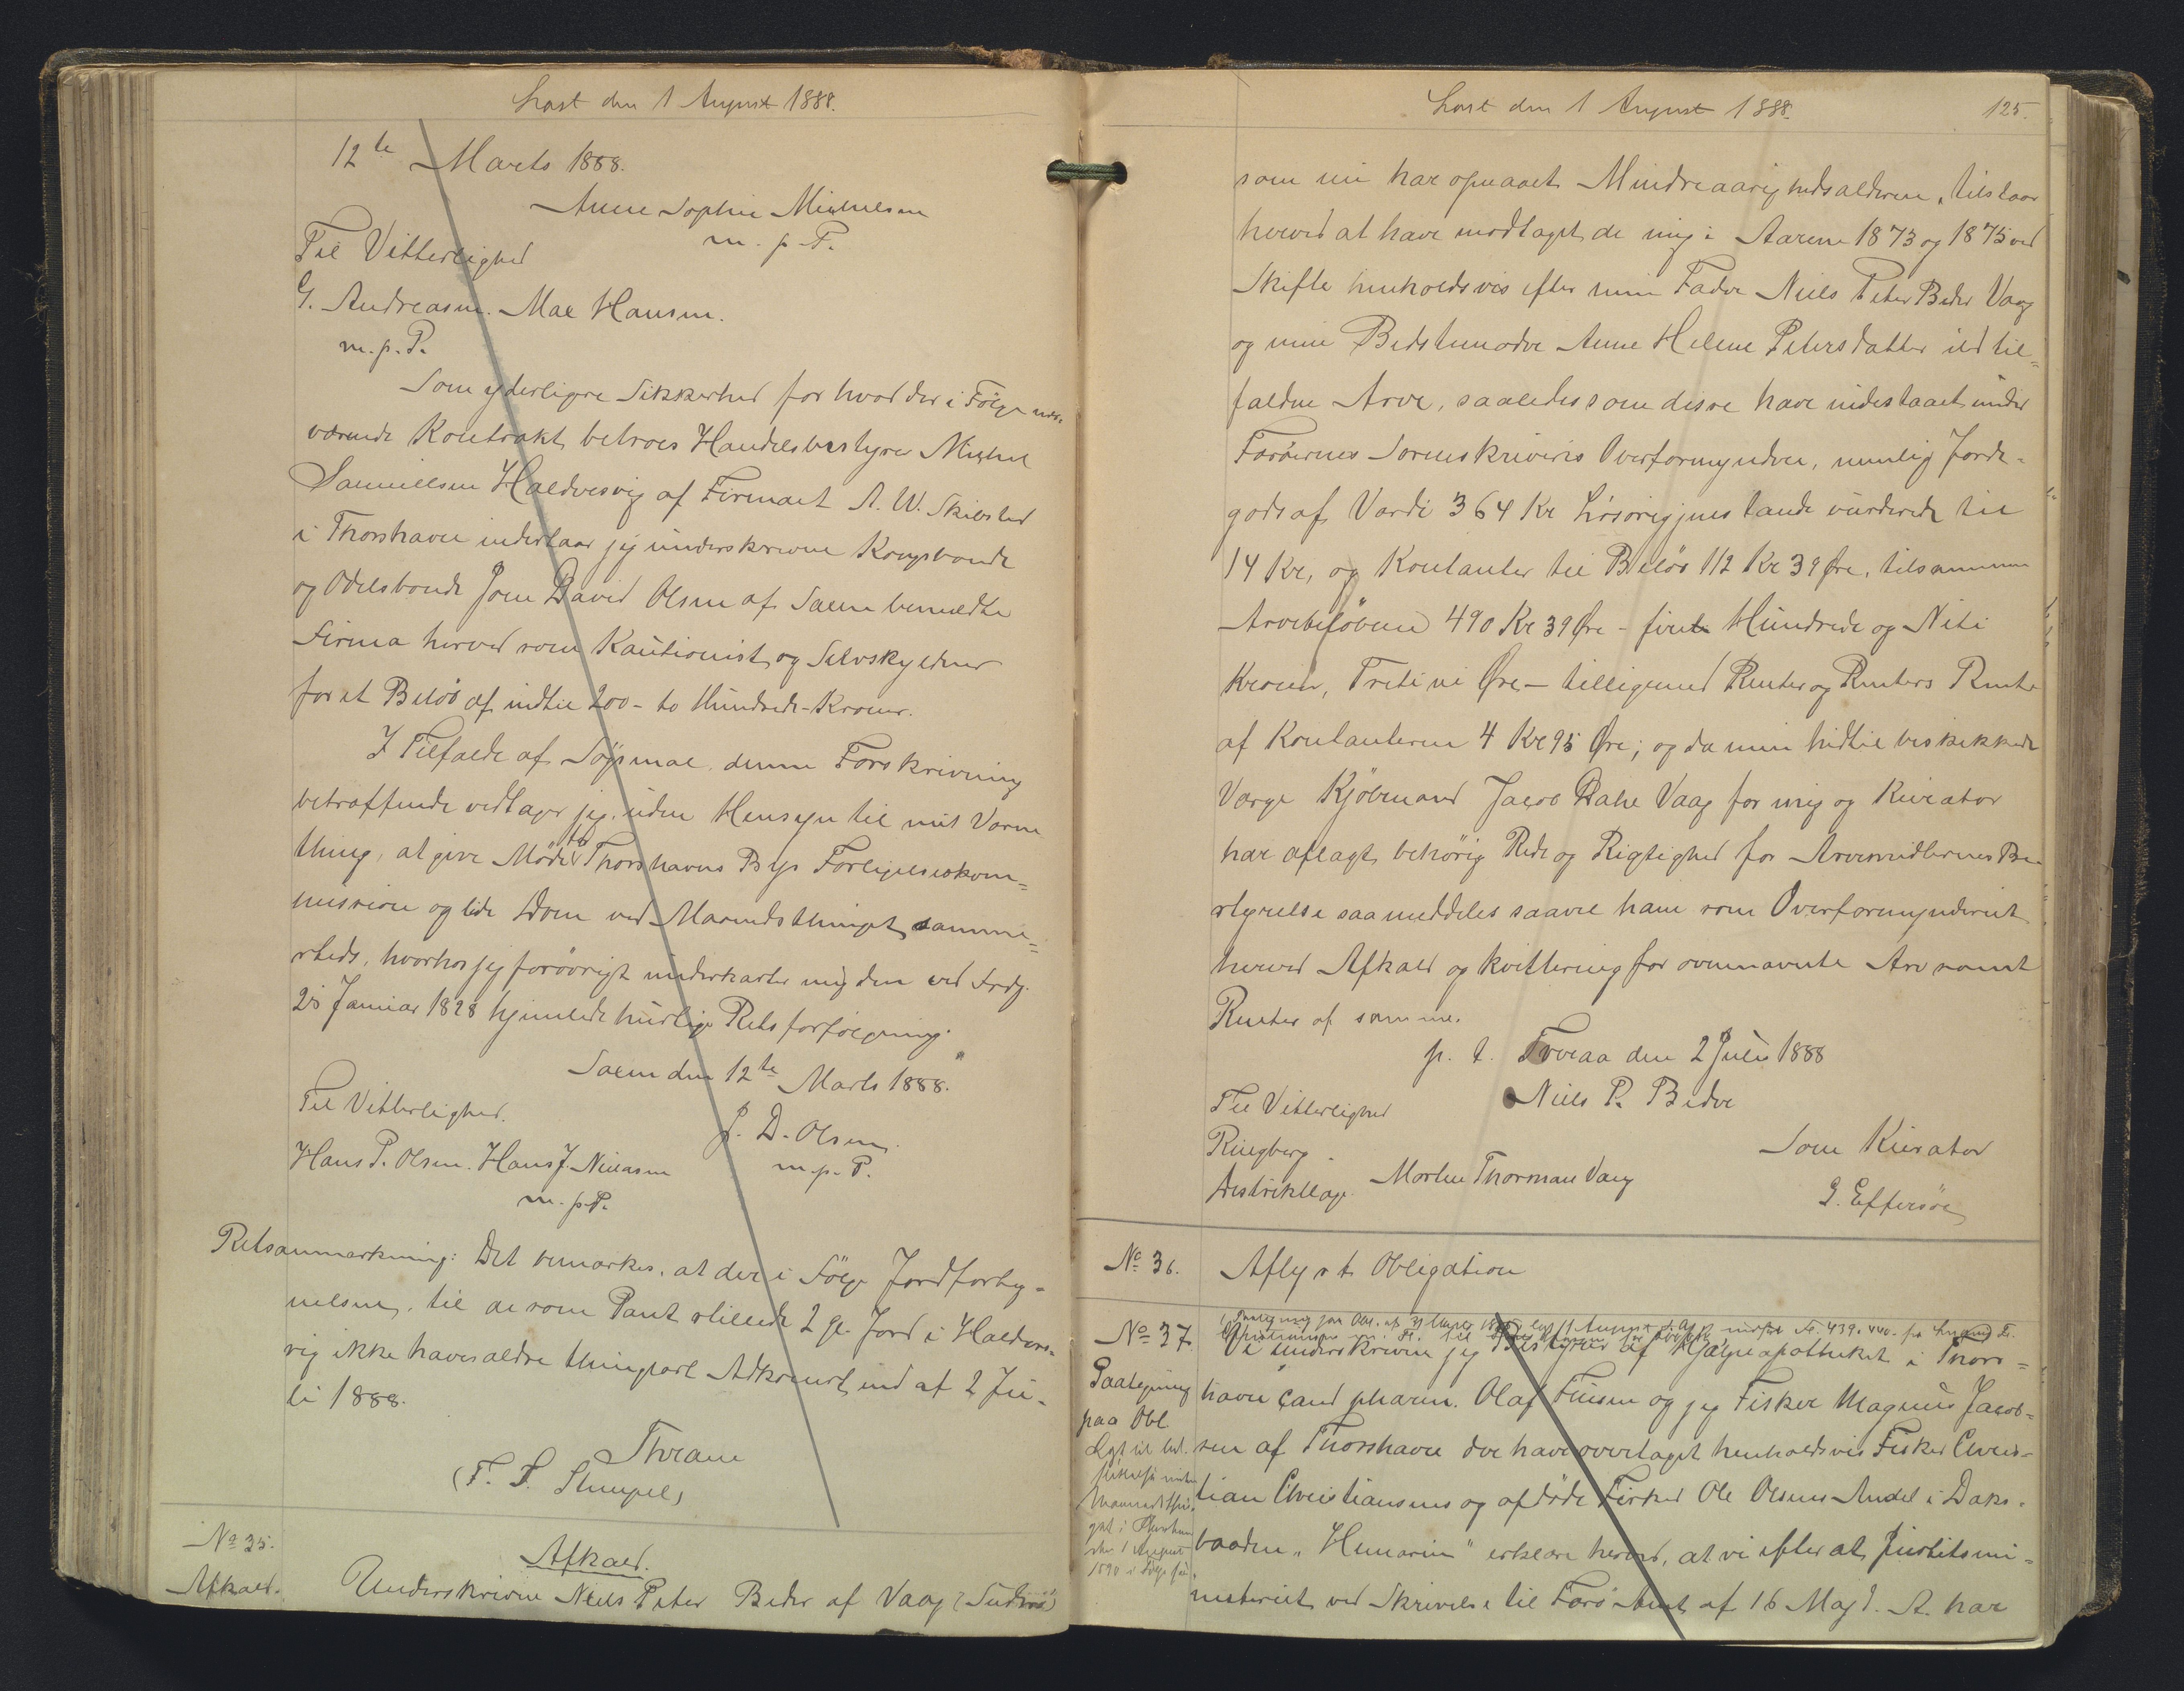 Læst den 1 August 1888.
12te Marts 1888.
Anne Sophie Michelsen
m. p. P.
Til Vitterlighed
G. Andreasen. Mal Hansen.
m. p. P.
Som yderligere Sikkerhed for hvad der i Følge nær-
værende Kontrakt betroes Handelsbestyrer Michel
Samuelsen Haldersvig af Firmaet A. W. Skibsted
i Thorshavn indestaar jeg underskrevne Kongsbonde
og Odelsbonde Joen David Olsen af Saxen bemeldte
Firma herved som Kautionist og Selvskyldner
for et Beløb af indtil 200 - to Hundrede - Kroner.
I Tilfælde af Søgsmaal denne Forskrivning
betræffende vedtager jeg, uden Hensyn til mit Værne
thing, at give Møde ved Thorshavns Byes Forligelseskom=
mission og lide Dom ved Maanedsthinget samme=
steds, hvorhos jeg forøvrigt underkaster mig den ved Frdg.
25 Januar 1828 hjemlede hurtige Retsforfølgning.
Saxen den 12te Marts 1888.
Til Vitterlighed.
J. D. Olsen.
Hans P. Olsen. Hans J. Niclasen
m. p. P.
m. p. P.
Retsanmærkning: Det bemærkes, at der i Følge Jordforteg=
nelsen, til de som Pant stillede 2 gl. Jord i Halders-
vig ikke haves ældre thinglæst Adkomst end af 2 Ju-
li 1888.
Thrane
(T. F. Stempel)
No 35.
Afkald.
Afkald.
Underskrevne Niels Peter Beder af Vaag (Suderø)
Læst den 1 August 1888.
125.
som nu har opnaaet Mindreaarighedsalderen, tilstaar
herved at have modtaget de mig i Aarene 1873 og 1875 ved
Skifte henholdsvis efter min Fader Niels Peter Beder Vaag
og min Bedstemoder Anne Helene Petersdatter ud til=
faldne Arve, saaledes som disse have indestaaet under
Færøernes Sorenskriveris Overformynderi, nemlig Jorde-
gods af Værdi 364 Kr Løsøregjenstande vurderede til
14 Kr, og Kontanter til Beløb 112 Kr 39 Øre, tilsammen
Arvebeløbene 490 Kr 39 Øre - fire Hundrede og Niti
Kroner, Treti ni Øre - tilligemed Renter og Renters Rente
af Kontanterne 4 Kr 95 Øre; og da min hidtil beskikkede
Værge Kjøbmand Jacob Dahl Vaag for mig og Kurator
har aflagt behørig Rede og Rigtighed for Arvemidlernes Be-
styrelse saa meddeles saavel ham som Overformynderiet
herved Afkald og Kvittering for ovennævnte Arv samt
Renter af samme.
p. t. Tveraa den 2 Juli 1888
Niels P. Beder
Til Vitterlighed
Ringberg
Distriktlæge.
Morten Thorman Vaag
Som Kurator
G. Effersøe
No 36.
Aflyst Obligation
No 37.
Paategning
paa Obl.
Vi underskrevne jeg Bestyrer af Hjælpeapotheket i Thors=
havn cand pharm. Olaf Finsen og jeg Fisker Magnus Jacob=
sen af Thorshavn der have overtaget henholdsvis Fisker Chris-
tian Christiansens og afdøde Fisker Ole Olsens Andel i Dæks-
baaden „Henarin" erklære herved, at vi efter at Justitsmi-
nisteriet ved Skrivelse til Færø Amt af 16 Maj d. A. har